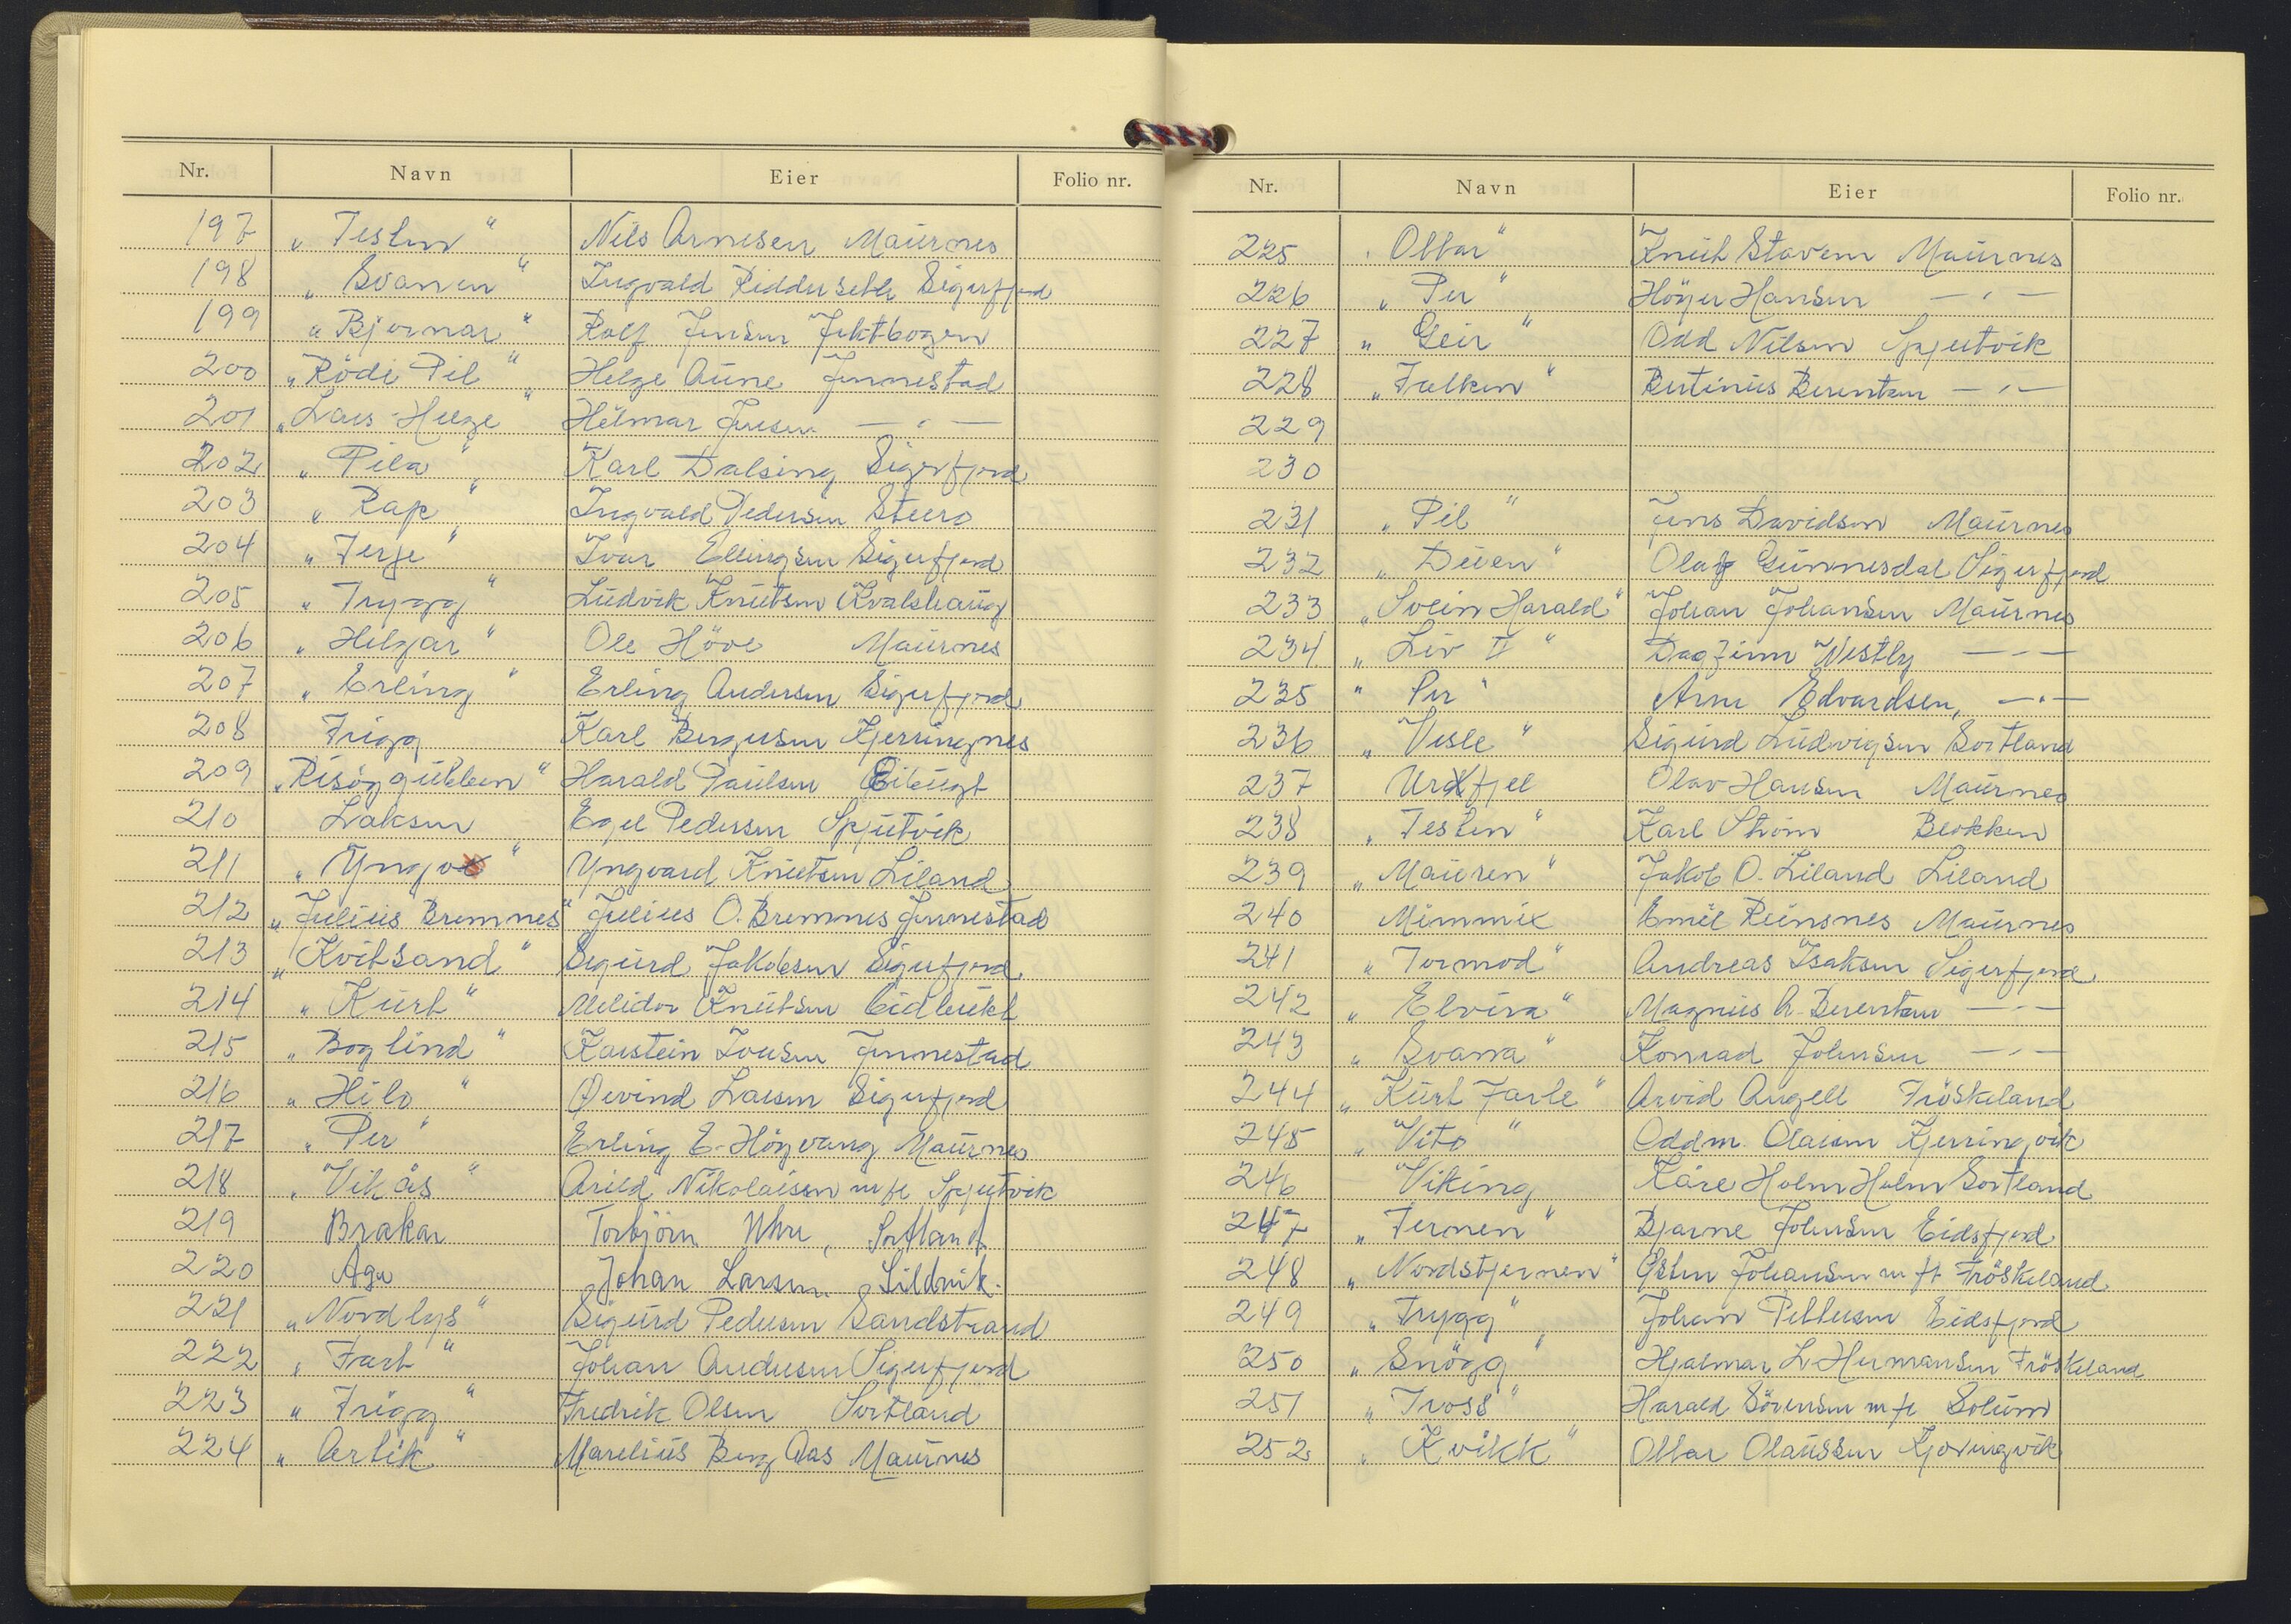 Nr. Navn Eier Folio nr.
197 „ Testen “ Nils Arnesen Maurnes
198 „ Svanen “ Ingvald Ridderseth Sigerfjord
199 „ Bjørnar “ Rolf Jensen Jektbogen
200 „ Rödi Pil “ Helge Aune Jennestad
201 „ Lars-Helge “ Hilmar Jensen — " —
202 „ Pila “ Karl Dalsing Sigerfjord
203 „ Rap “ Ingvald Pedersen Steiro
204 „ Terje “ Ivar Ellingsen Sigerfjord
205 „ Trygg “ Ludvik Knutsen Kvalshaug
206 „ Helgar “ Ole Höve Maurnes
207 „ Erling “ Erling Andersen Sigerfjord
208 Frigg Karl Bergersen Kjerringnes
209 „ Risöygubben “ Harald Paulsen
210 Laksen Egil Pedersen Spjutvik
211 „ Yngve “ Yngvard Knutsen Liland
212 „ Julius Bremnes “ Julius O. Bremnes Jennestad
213 „ Kvitsand “ Sigurd Jakobsen Sigerfjord
214 „ Kurt “ Melidor Knutsen Eidbukt
215 „ Boglind “ Karstein Toresen Jennestad
216 „ Hilo “ Øivind Larsen Sigerfjord
217 „ Per “ Erling E. Högvang Maurnes
218 „ Vikås “ Arild Nikolaisen m fl Spjutvik
219 Brakar Torbjörn Uhre, Sortland
220 Aga Johan Larsen, Sildvik.
221 „ Nordlys “ Sigurd Pedersen Sandstrand
222 „ Fart “ Johan Andersen Sigerfjord
223 „ Frigg “ Fredrik Olsen Sortland
224 „ Artik “ Marelius Berg Aas Maurnes
Nr. Navn Eier Folio nr.
225 „ Ottar “ Knut Stavem Maurnes
226 „ Per “ Höyer Hansen — " —
227 „ Geir “ Odd Nilsen Spjutvik
228 „ Falken “ Bertinius Berentsen — " —
229
230
231 „ Pil “ Jens Davidsen Maurnes
232 „ Duen “ Olaf Gunnesdal Sigerfjord
233 „ Svein Harald “ Johan Johansen Maurnes
234 „ Liv II “ Dagfinn Westly — " —
235 „ Per “ Arne Edvardsen, — " —
236 „ Vesle “ Sigurd Ludvigsen Sortland
237 Urdfjel Olav Hansen Maurnes
238 „ Testen “ Karl Ström Blokken
239 „ Mauren “ Jakob O. Liland Liland
240 Mimmix Emil Reinsnes Maurnes
241 „ Tormod “ Andreas Isaksen Sigerfjord
242 „ Elvira “ Magnus A. Berentsen — " —
243 „ Svana “ Konrad Johnsen — " —
244 „ Kurt Jarle “ Arvid Angell Fröskeland
245 „ Vito “ Oddm. Olaisen Kjerringvik
246 Viking Kåre Holm Holm Sortland
247 „ Ternen “ Bjarne Johnsen Eidsfjord
248 „ Nordstjernen “ Johansen m fl Fröskeland
249 „ Trygg “ Johan Pettersen Eidsfjord
250 „ Snögg “ Hjalmar L Hermansen Fröskeland
251 „ Tross “ Harald Sörensen m fl Solum
252 „ Kvikk “ Ottar Olaussen Kjerringvik